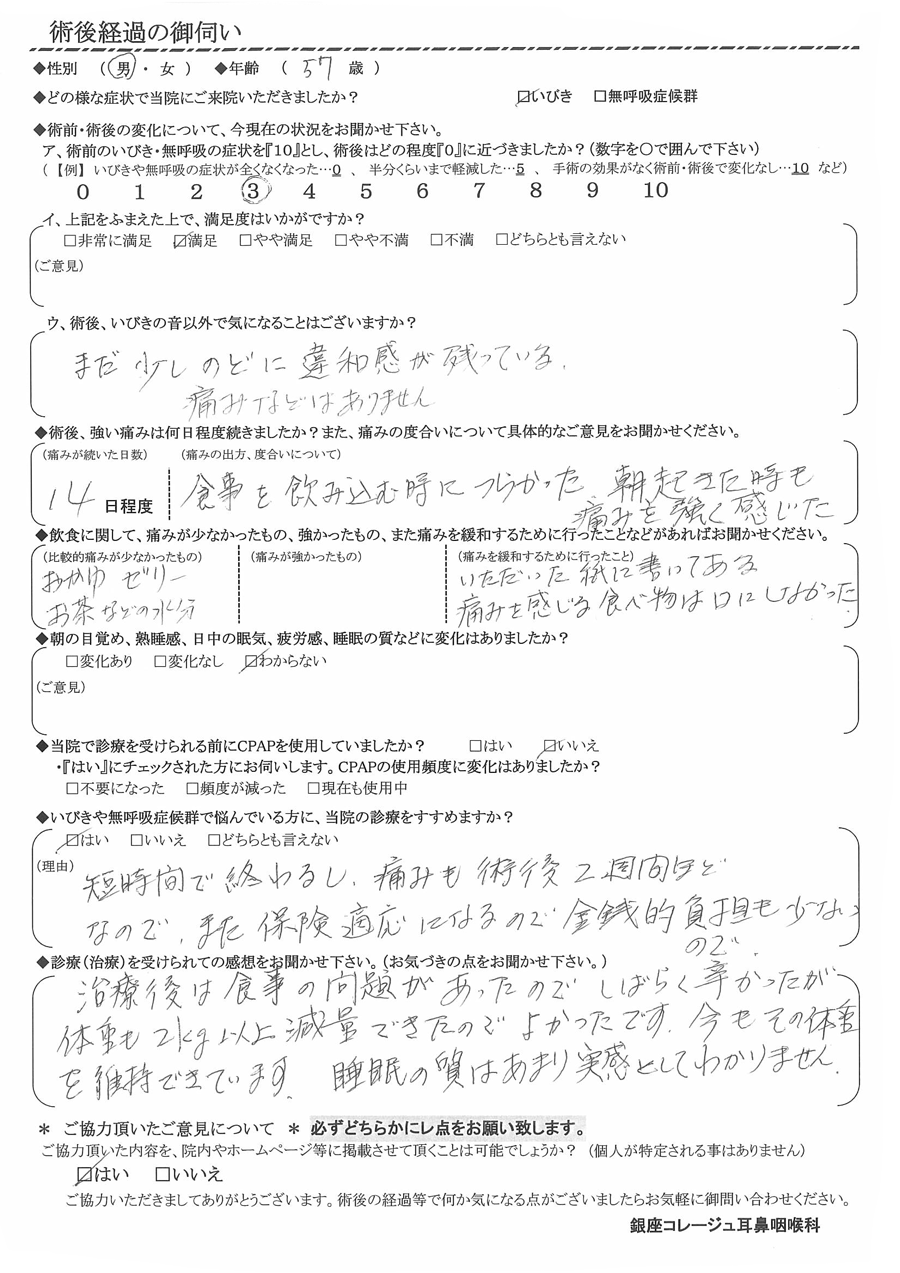 術後経過の御伺い
◆性別 （ 男 ・ 女 ） ◆年齢 （ 57 歳 ）
◆どの様な症状で当院にご来院いただきましたか？ ☑いびき □無呼吸症候群
◆術前・術後の変化について、今現在の状況をお聞かせ下さい。
ア、術前のいびき・無呼吸の症状を『10』とし、術後はどの程度『0』に近づきましたか？（数字を〇で囲んで下さい）
（ 【例】 いびきや無呼吸の症状が全くなくなった…0 、 半分くらいまで軽減した…5 、 手術の効果がなく術前・術後で変化なし…10 など）
0 1 2 3 4 5 6 7 8 9 10
イ、上記をふまえた上で、満足度はいかがですか？
□非常に満足 ☑満足 □やや満足 □やや不満 □不満 □どちらとも言えない
（ご意見）
ウ、術後、いびきの音以外で気になることはございますか？
まだ少しのどに違和感が残っている.
痛みなどはありません
◆術後、強い痛みは何日程度続きましたか？また、痛みの度合いについて具体的なご意見をお聞かせください。
（痛みが続いた日数） （痛みの出方、度合いについて）
14 日程度 食事を飲み込む時につらかった 朝起きた時も
痛みを強く感じた
◆飲食に関して、痛みが少なかったもの、強かったもの、また痛みを緩和するために行ったことなどがあればお聞かせください。
（比較的痛みが少なかったもの） （痛みが強かったもの） （痛みを緩和するために行ったこと）
おかゆ ゼリー いただいた紙に書いてある
お茶などの水分 痛みを感じる食べ物は口にしなかった.
◆朝の目覚め、熟睡感、日中の眠気、疲労感、睡眠の質などに変化はありましたか？
□変化あり □変化なし ☑わからない
（ご意見）
◆当院で診療を受けられる前にCPAPを使用していましたか？ □はい ☑いいえ
・『はい』にチェックされた方にお伺いします。CPAPの使用頻度に変化はありましたか？
□不要になった □頻度が減った □現在も使用中
◆いびきや無呼吸症候群で悩んでいる方に、当院の診療をすすめますか？
☑はい □いいえ □どちらとも言えない
（理由）
短時間で終わるし、痛みも術後2週間ほど
なので、また保険適応になるので金銭的負担も少ない
ので.
◆診療（治療）を受けられての感想をお聞かせ下さい。（お気づきの点をお聞かせ下さい。）
治療後は食事の問題があったのでしばらく辛かったが
体重も2kg以上減量できたのでよかったです. 今もその体重
を維持できています. 睡眠の質はあまり実感としてわかりません.
＊ ご協力頂いたご意見について ＊ 必ずどちらかにレ点をお願い致します。
ご協力頂いた内容を、院内やホームページ等に掲載させて頂くことは可能でしょうか？ （個人が特定される事はありません）
☑はい □いいえ
ご協力いただきましてありがとうございます。術後の経過等で何か気になる点がございましたらお気軽に御問い合わせください。
銀座コレージュ耳鼻咽喉科